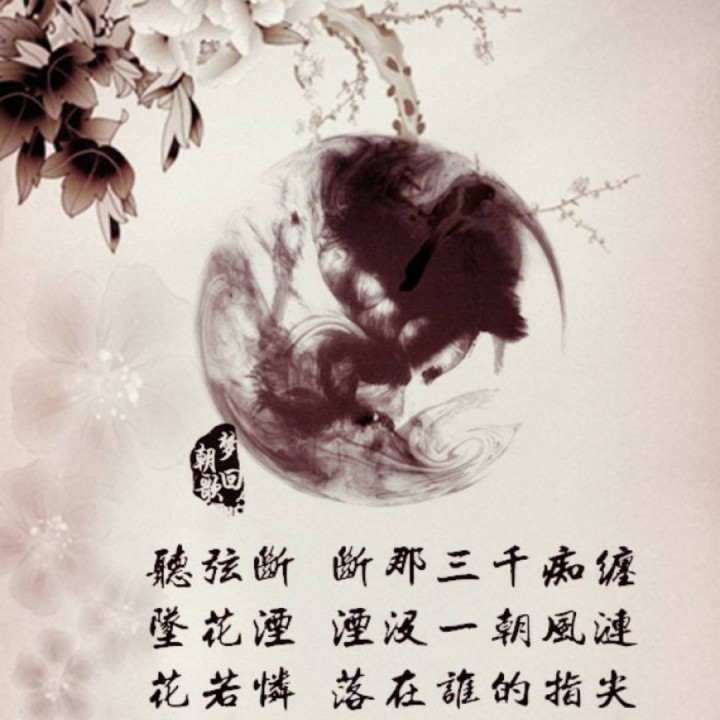 梦回
朝歌
聽弦斷 斷那三千痴纏
墜花湮 湮没一朝風漣
花若憐 落在誰的指尖